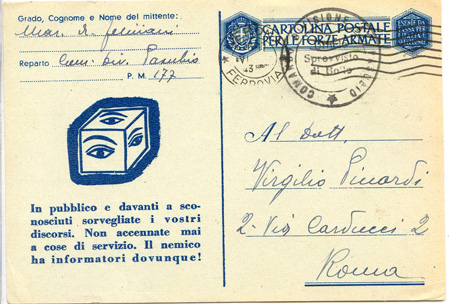 Grado, Cognome e Nome del mittente:
Reparto Com. Div. Pasubio
P. M. 177
CARTOLINA POSTALE
PER LE FORZE ARMATE
FERROVIA
43
Sprovvisto
di Bollo
Al Dott.
Virgilio Pinardi
2 - Via Carducci 2
Roma
In pubblico e davanti a sco-
nosciuti sorvegliate i vostri
discorsi. Non accennate mai
a cose di servizio. Il nemico
ha informatori dovunque!